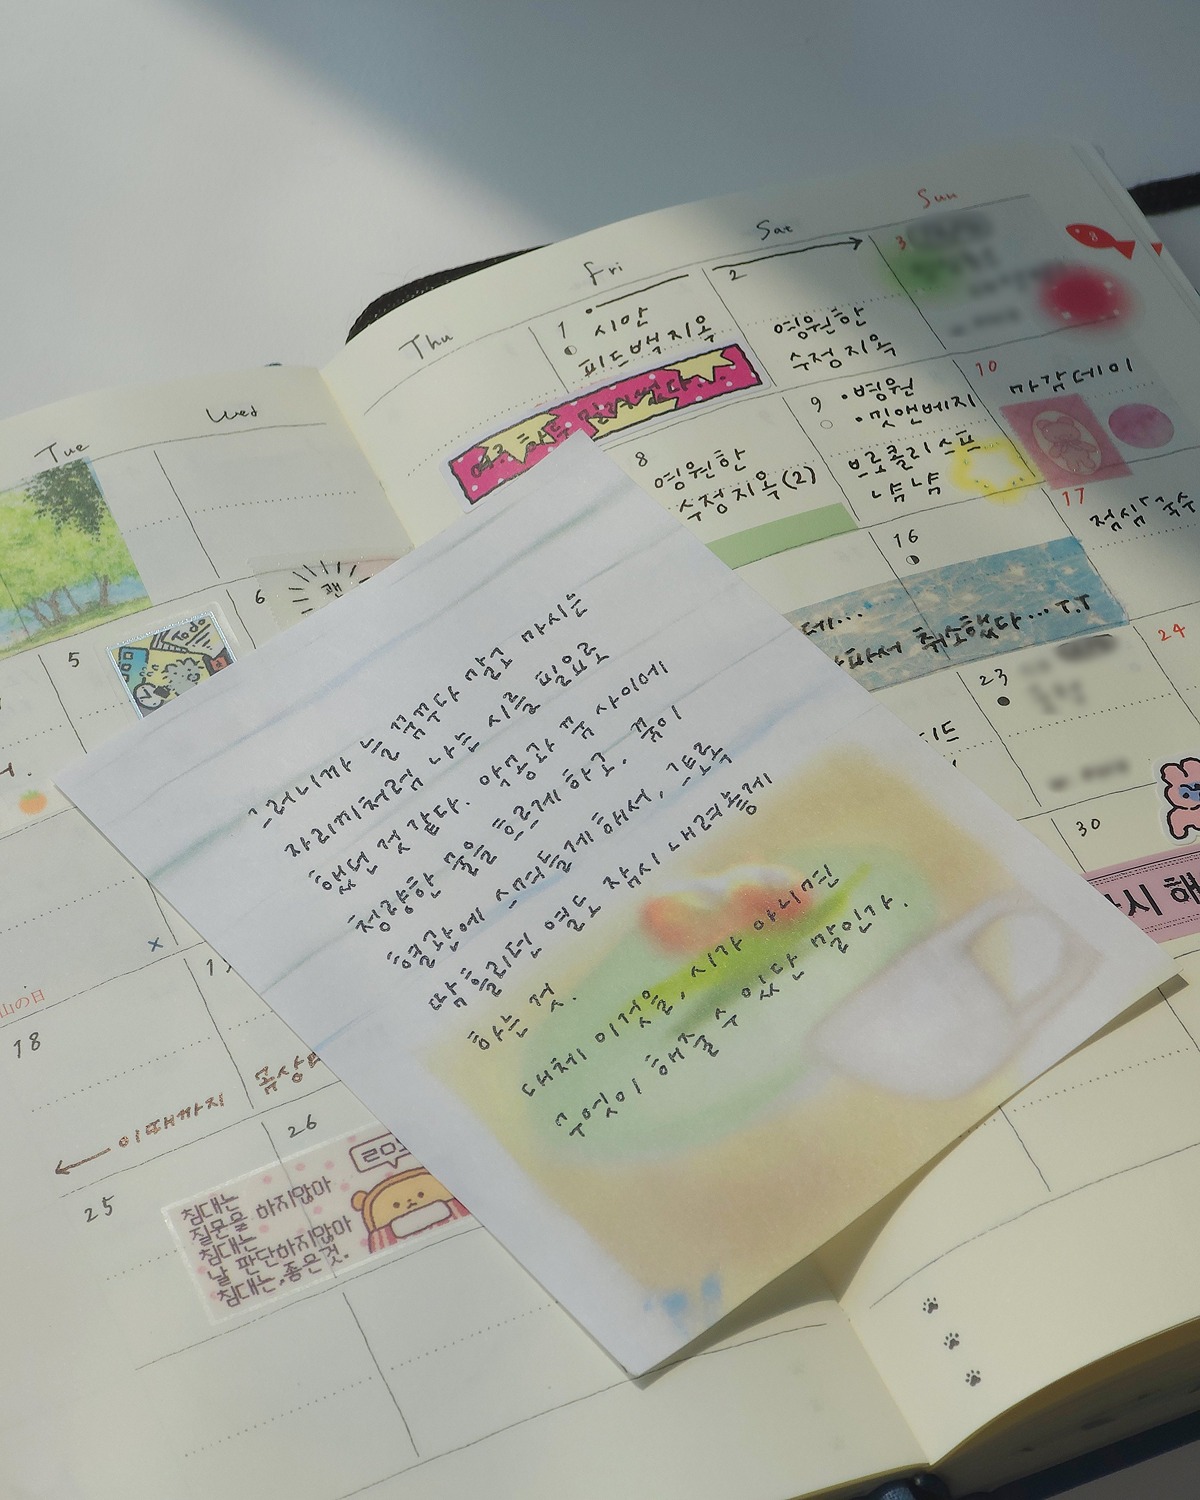 Tue
Wed
Thu
Fri
Sat
Sun
1
시안
피드백 지옥
2
영원한
수정 지옥
3
8
5
To do
6
8
영원한
수정 지옥 (2)
9
·병원
·밋앤베지
브로콜리 스프
냠냠
10
마감데이
16
데...
아파서 취소했다... T.T
17
점심 국수
23
24
30
시 해
山の日
18
이때까지
25
26
침대는
질문을 하지않아
침대는
날 판단하지않아
침대는, 좋은것.
그러니까 늘 꿈꾸다 말고 마시는
자리끼처럼 나는 시를 필요로
했던 것 같다. 악몽과 꿈 사이에
청량한 물을 흐르게 하고. 꿈이
혈관에 스며들게 해서, 그토록
땀 흘리던 열도 잠시 내려놓게
하는 것.
대체 이것을, 시가 아니면
무엇이 해줄 수 있단 말인가.